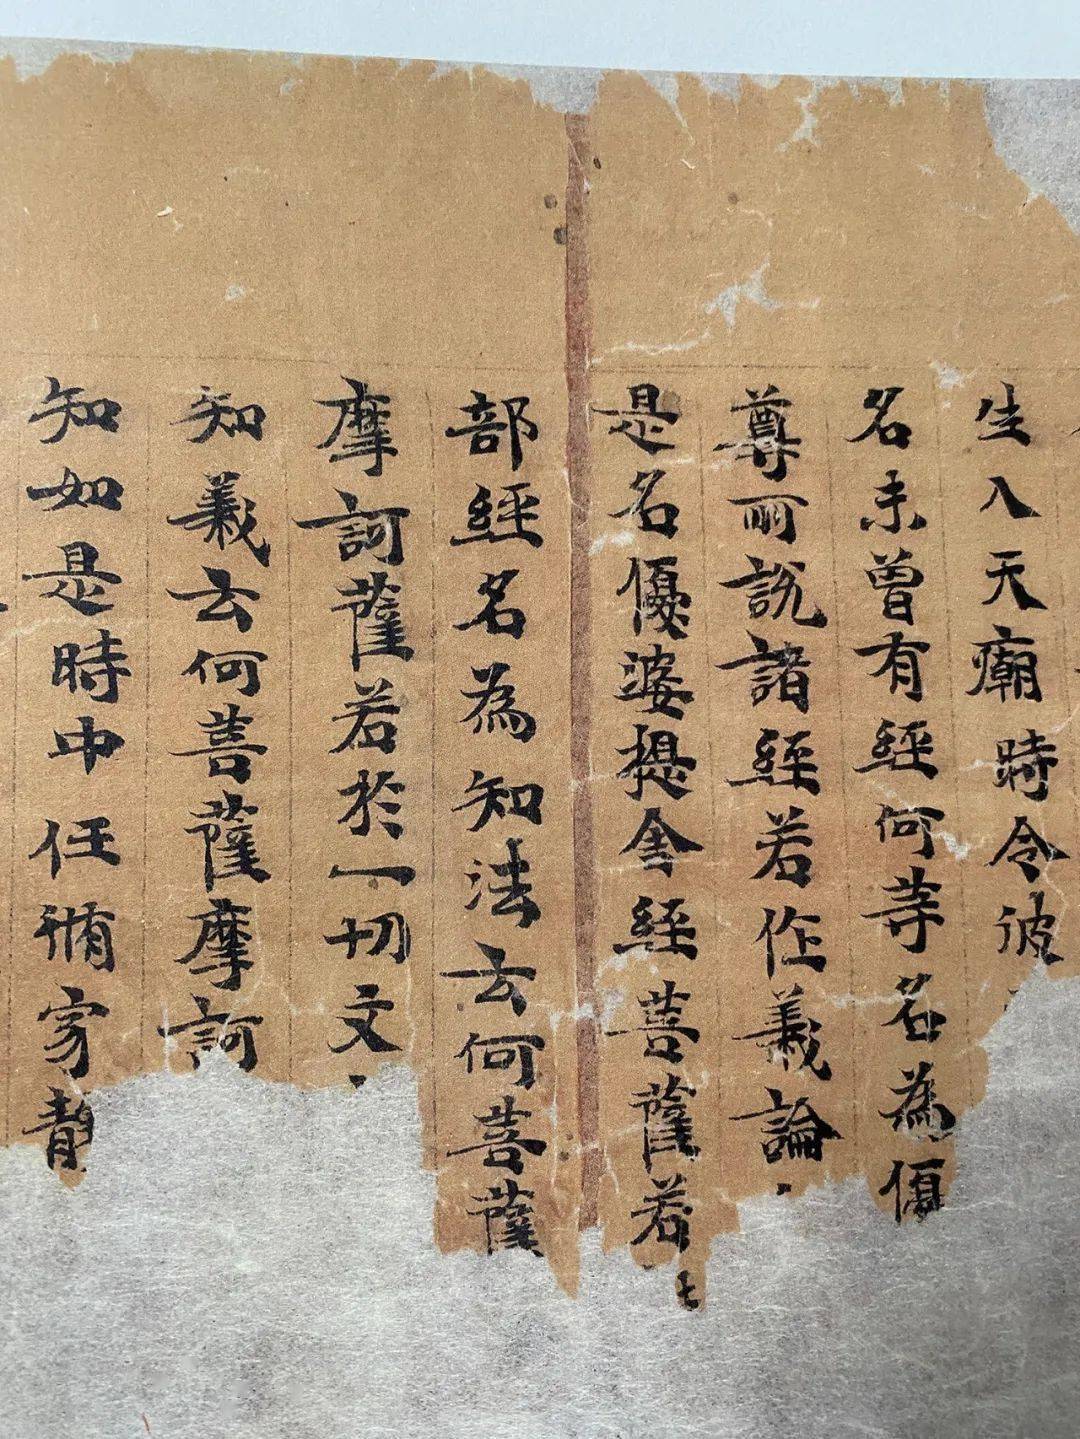 生入天廟時令彼
名未曾有經何等名為優
尊所說諸經若作義論
是名優婆提舍經菩薩若
部經名為知法云何菩薩
摩訶薩若於一切文
知義云何菩薩摩訶
知如是時中任脩寂靜